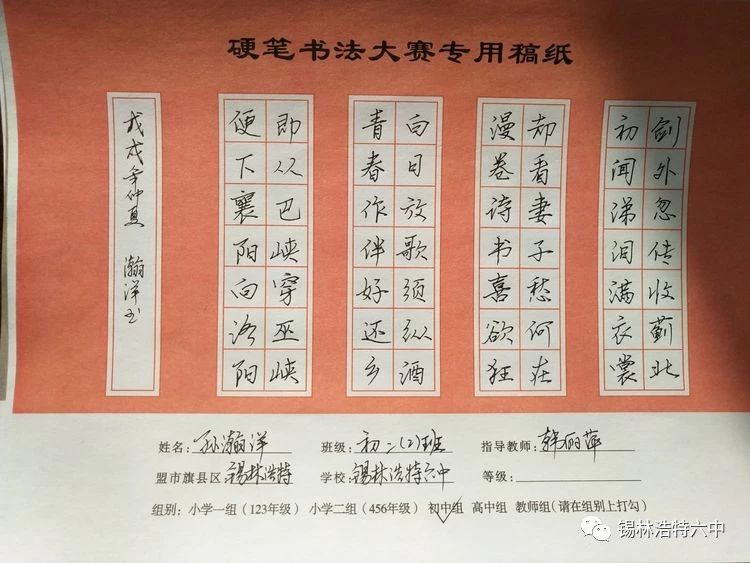 硬笔书法大赛专用稿纸
剑外忽传收蓟北
初闻涕泪满衣裳
却看妻子愁何在
漫卷诗书喜欲狂
白日放歌须纵酒
青春作伴好还乡
即从巴峡穿巫峡
便下襄阳向洛阳
戊戌年仲夏 瀚洋书
姓名：孙瀚洋 班级：初二(2)班 指导教师：韩丽萍
盟市旗县区：锡林浩特 学校：锡林浩特六中 等级：
组别：小学一组（123年级） 小学二组（456年级） 初中组 高中组 教师组（请在组别上打勾）
锡林浩特六中